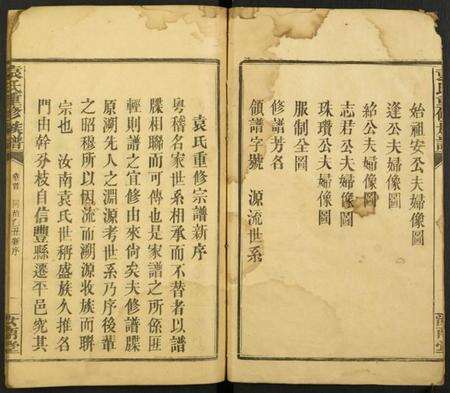 始祖安公夫婦像圖
逢公夫婦像圖
紹公夫婦像圖
志君公夫婦像圖
珠瓚公夫婦像圖
服制全圖
修譜芳名
領譜字號 源流世系
汝南堂
袁氏重修宗譜新序
粵稽名家世系相承而不替者以譜
牒相聯而可傳也是家譜之所係匪
輕則譜之宜修由來尙矣夫修譜牒
原溯先人之淵源考世系乃序後輩
之昭穆所以因流而溯源收族而聯
宗也 汝南袁氏世稱盛族久推名
門由幹分枝自信豐縣遷平邑究其
袁氏重修族譜
卷首
新序
汝南堂